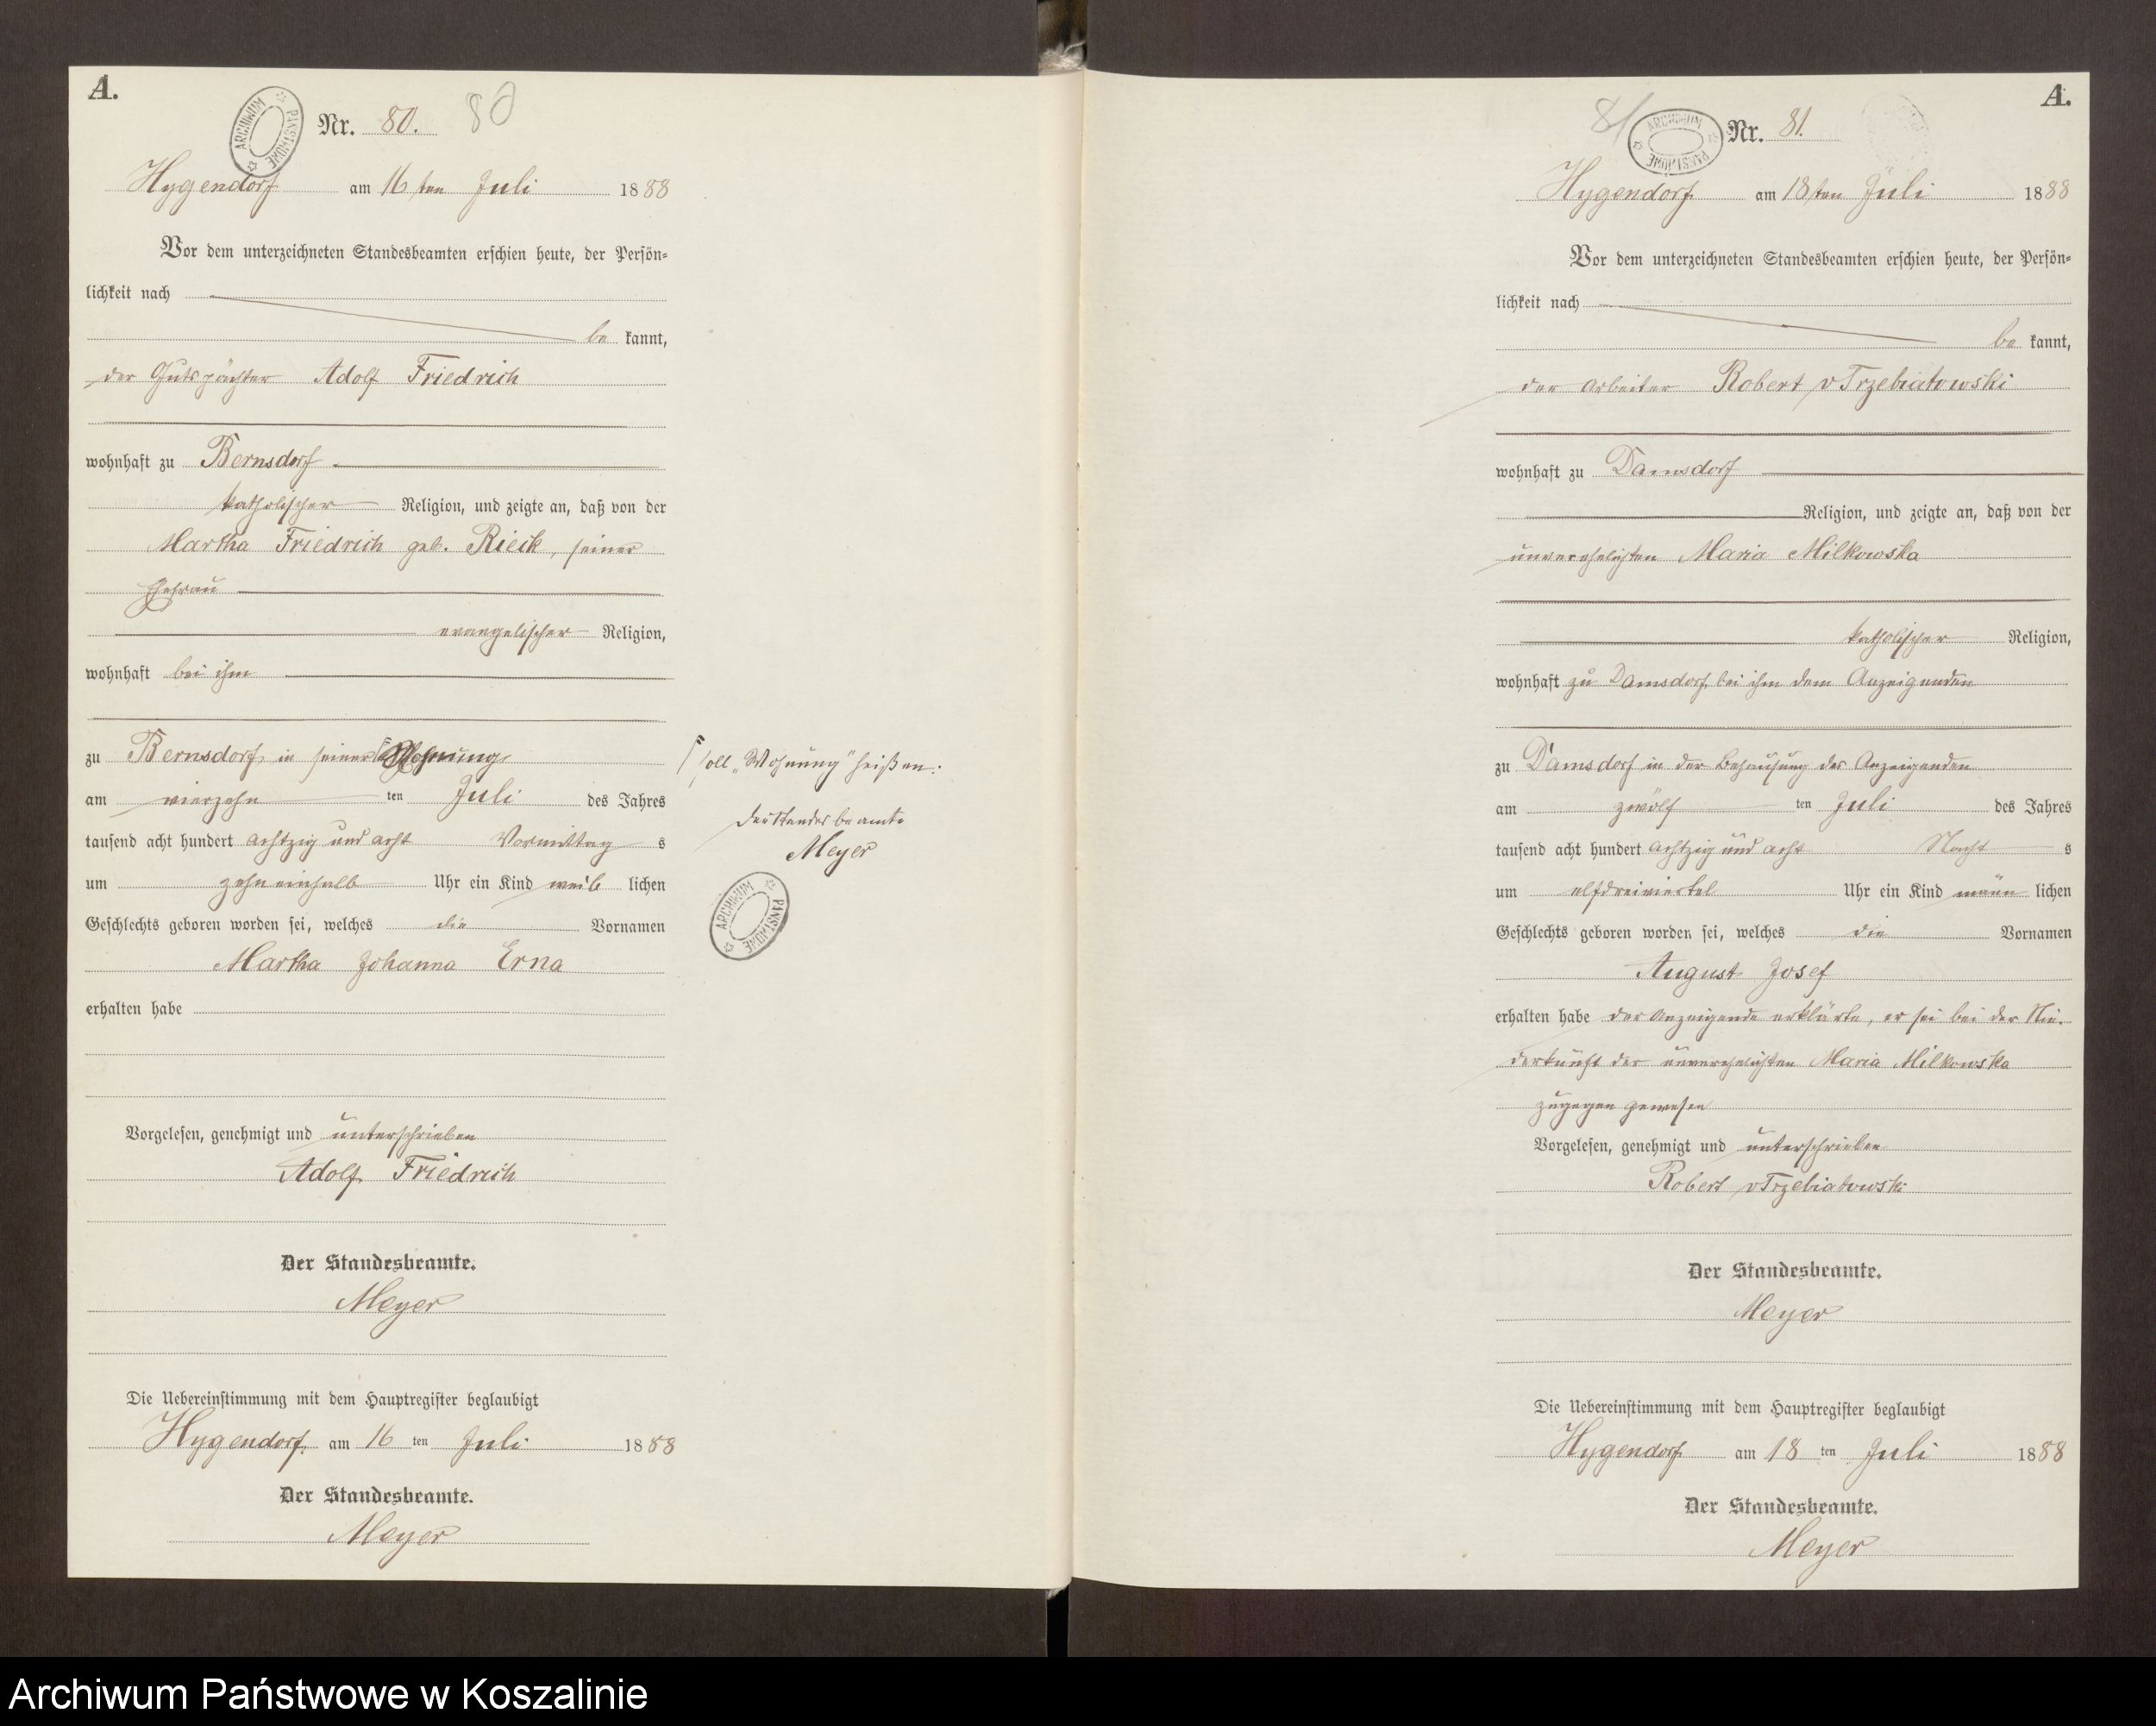 A.
ARCHIWUM PAŃSTWOWE
Nr. 80. 80
Hygendorf am 16ten Juli 1888
Vor dem unterzeichneten Standesbeamten erschien heute, der Persön-
lichkeit nach
be kannt,
der Gutspächter Adolf Friedrich
wohnhaft zu Bernsdorf
katholischer Religion, und zeigte an, daß von der
Martha Friedrich geb. Rieck, seiner
Ehefrau
evangelischer Religion,
wohnhaft bei ihm
zu Bernsdorf, in seiner Wohnung
am vierzehn ten Juli des Jahres
tausend acht hundert achtzig und acht Vormittag s
um zehn einhalb Uhr ein Kind weib lichen
Geschlechts geboren worden sei, welches die Vornamen
Martha Johanna Erna
erhalten habe
Vorgelesen, genehmigt und unterschrieben
Adolf Friedrich
Der Standesbeamte.
Meyer
Die Uebereinstimmung mit dem Hauptregister beglaubigt
Hygendorf, am 16 ten Juli 1888
Der Standesbeamte.
Meyer
soll „Wohnung" heißen.
Der Standesbeamte
Meyer
ARCHIWUM PAŃSTWOWE
A.
81
ARCHIWUM PAŃSTWOWE
Nr. 81.
Hygendorf, am 18ten Juli 1888
Vor dem unterzeichneten Standesbeamten erschien heute, der Persön-
lichkeit nach
be kannt,
der Arbeiter Robert v Trzebiatowski
wohnhaft zu Damsdorf
Religion, und zeigte an, daß von der
unverehelichten Maria Milkowska
katholischer Religion,
wohnhaft zu Damsdorf, bei ihm dem Anzeigenden
zu Damsdorf in der Behausung des Anzeigenden
am zwölf ten Juli des Jahres
tausend acht hundert achtzig und acht Nacht s
um elfdreiviertel Uhr ein Kind männ lichen
Geschlechts geboren worden sei, welches die Vornamen
August Josef
erhalten habe der Anzeigende erklärte, er sei bei der Nie-
derkunft der unverehelichten Maria Milkowska
zugegen gewesen
Vorgelesen, genehmigt und unterschrieben
Robert v Trzebiatowski
Der Standesbeamte.
Meyer
Die Uebereinstimmung mit dem Hauptregister beglaubigt
Hygendorf am 18 ten Juli 1888
Der Standesbeamte.
Meyer
Archiwum Państwowe w Koszalinie